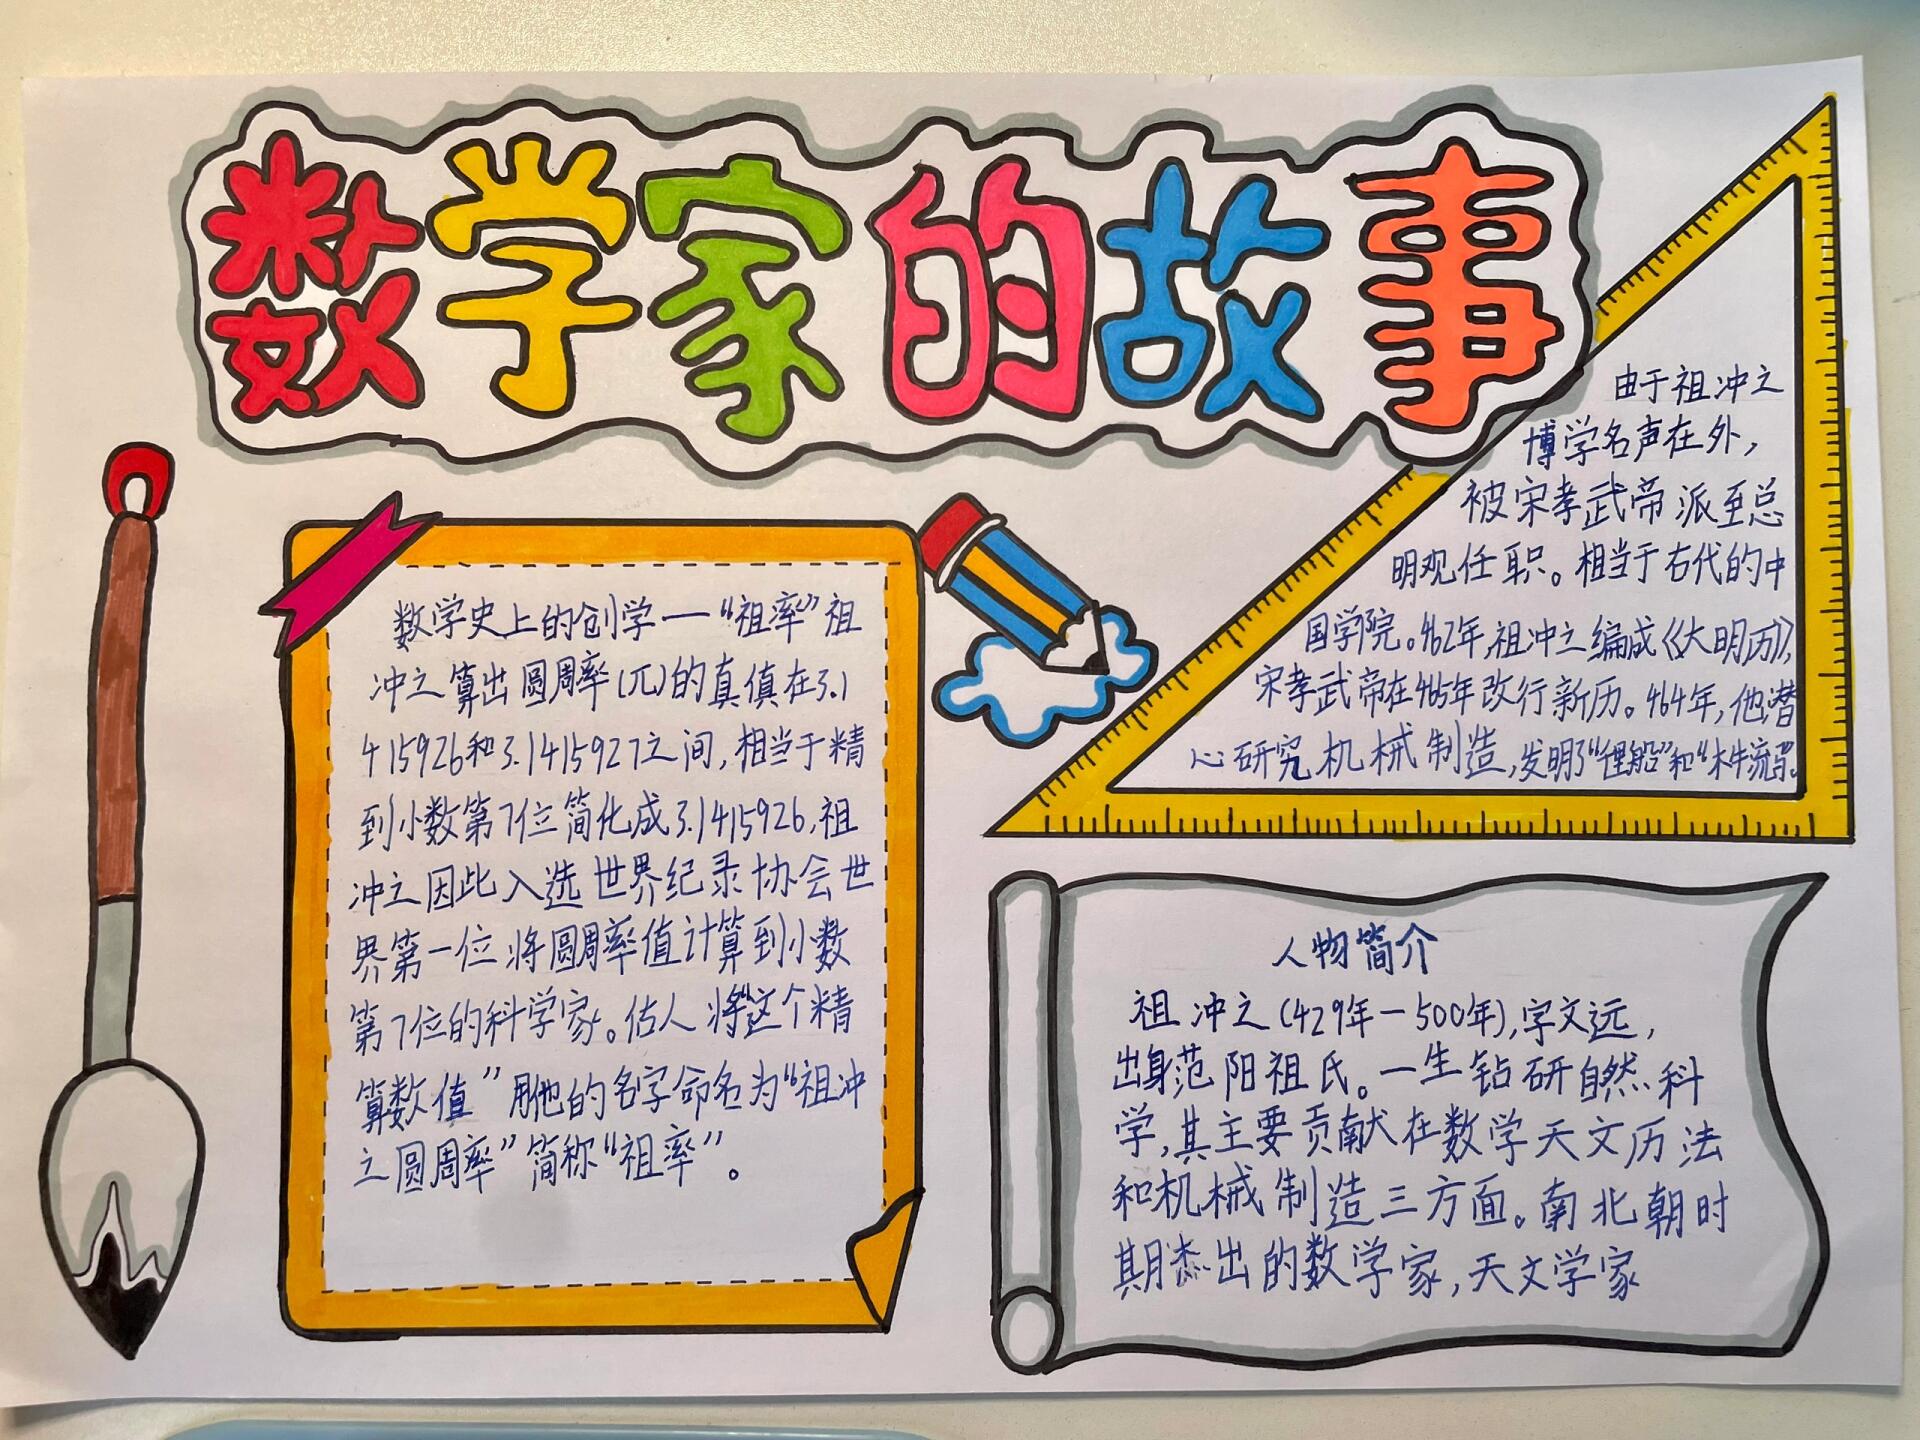 数学家的故事
数学史上的创学一“祖率”祖
冲之算出圆周率(兀)的真值在3.1
415926和3.1415927之间,相当于精
到小数第7位简化成3.1415926,祖
冲之因此入选世界纪录协会世
界第一位将圆周率值计算到小数
第7位的科学家。估人将“这个精
算数值”用他的名字命名为“祖冲
之圆周率”简称“祖率”。
由于祖冲之
博学名声在外,
被宋孝武帝派至总
明观任职。相当于右代的中
国学院。462年,祖冲之编成《大明历》,
宋孝武帝在465年改行新历。464年,他潜
心研究机械制造,发明了“俚船”和“木牛流马”。
人物简介
祖冲之(429年一500年),字文远,
出身范阳祖氏。一生钻研自然科
学,其主要贡献在数学天文历法
和机械制造三方面。南北朝时
期杰出的数学家,天文学家